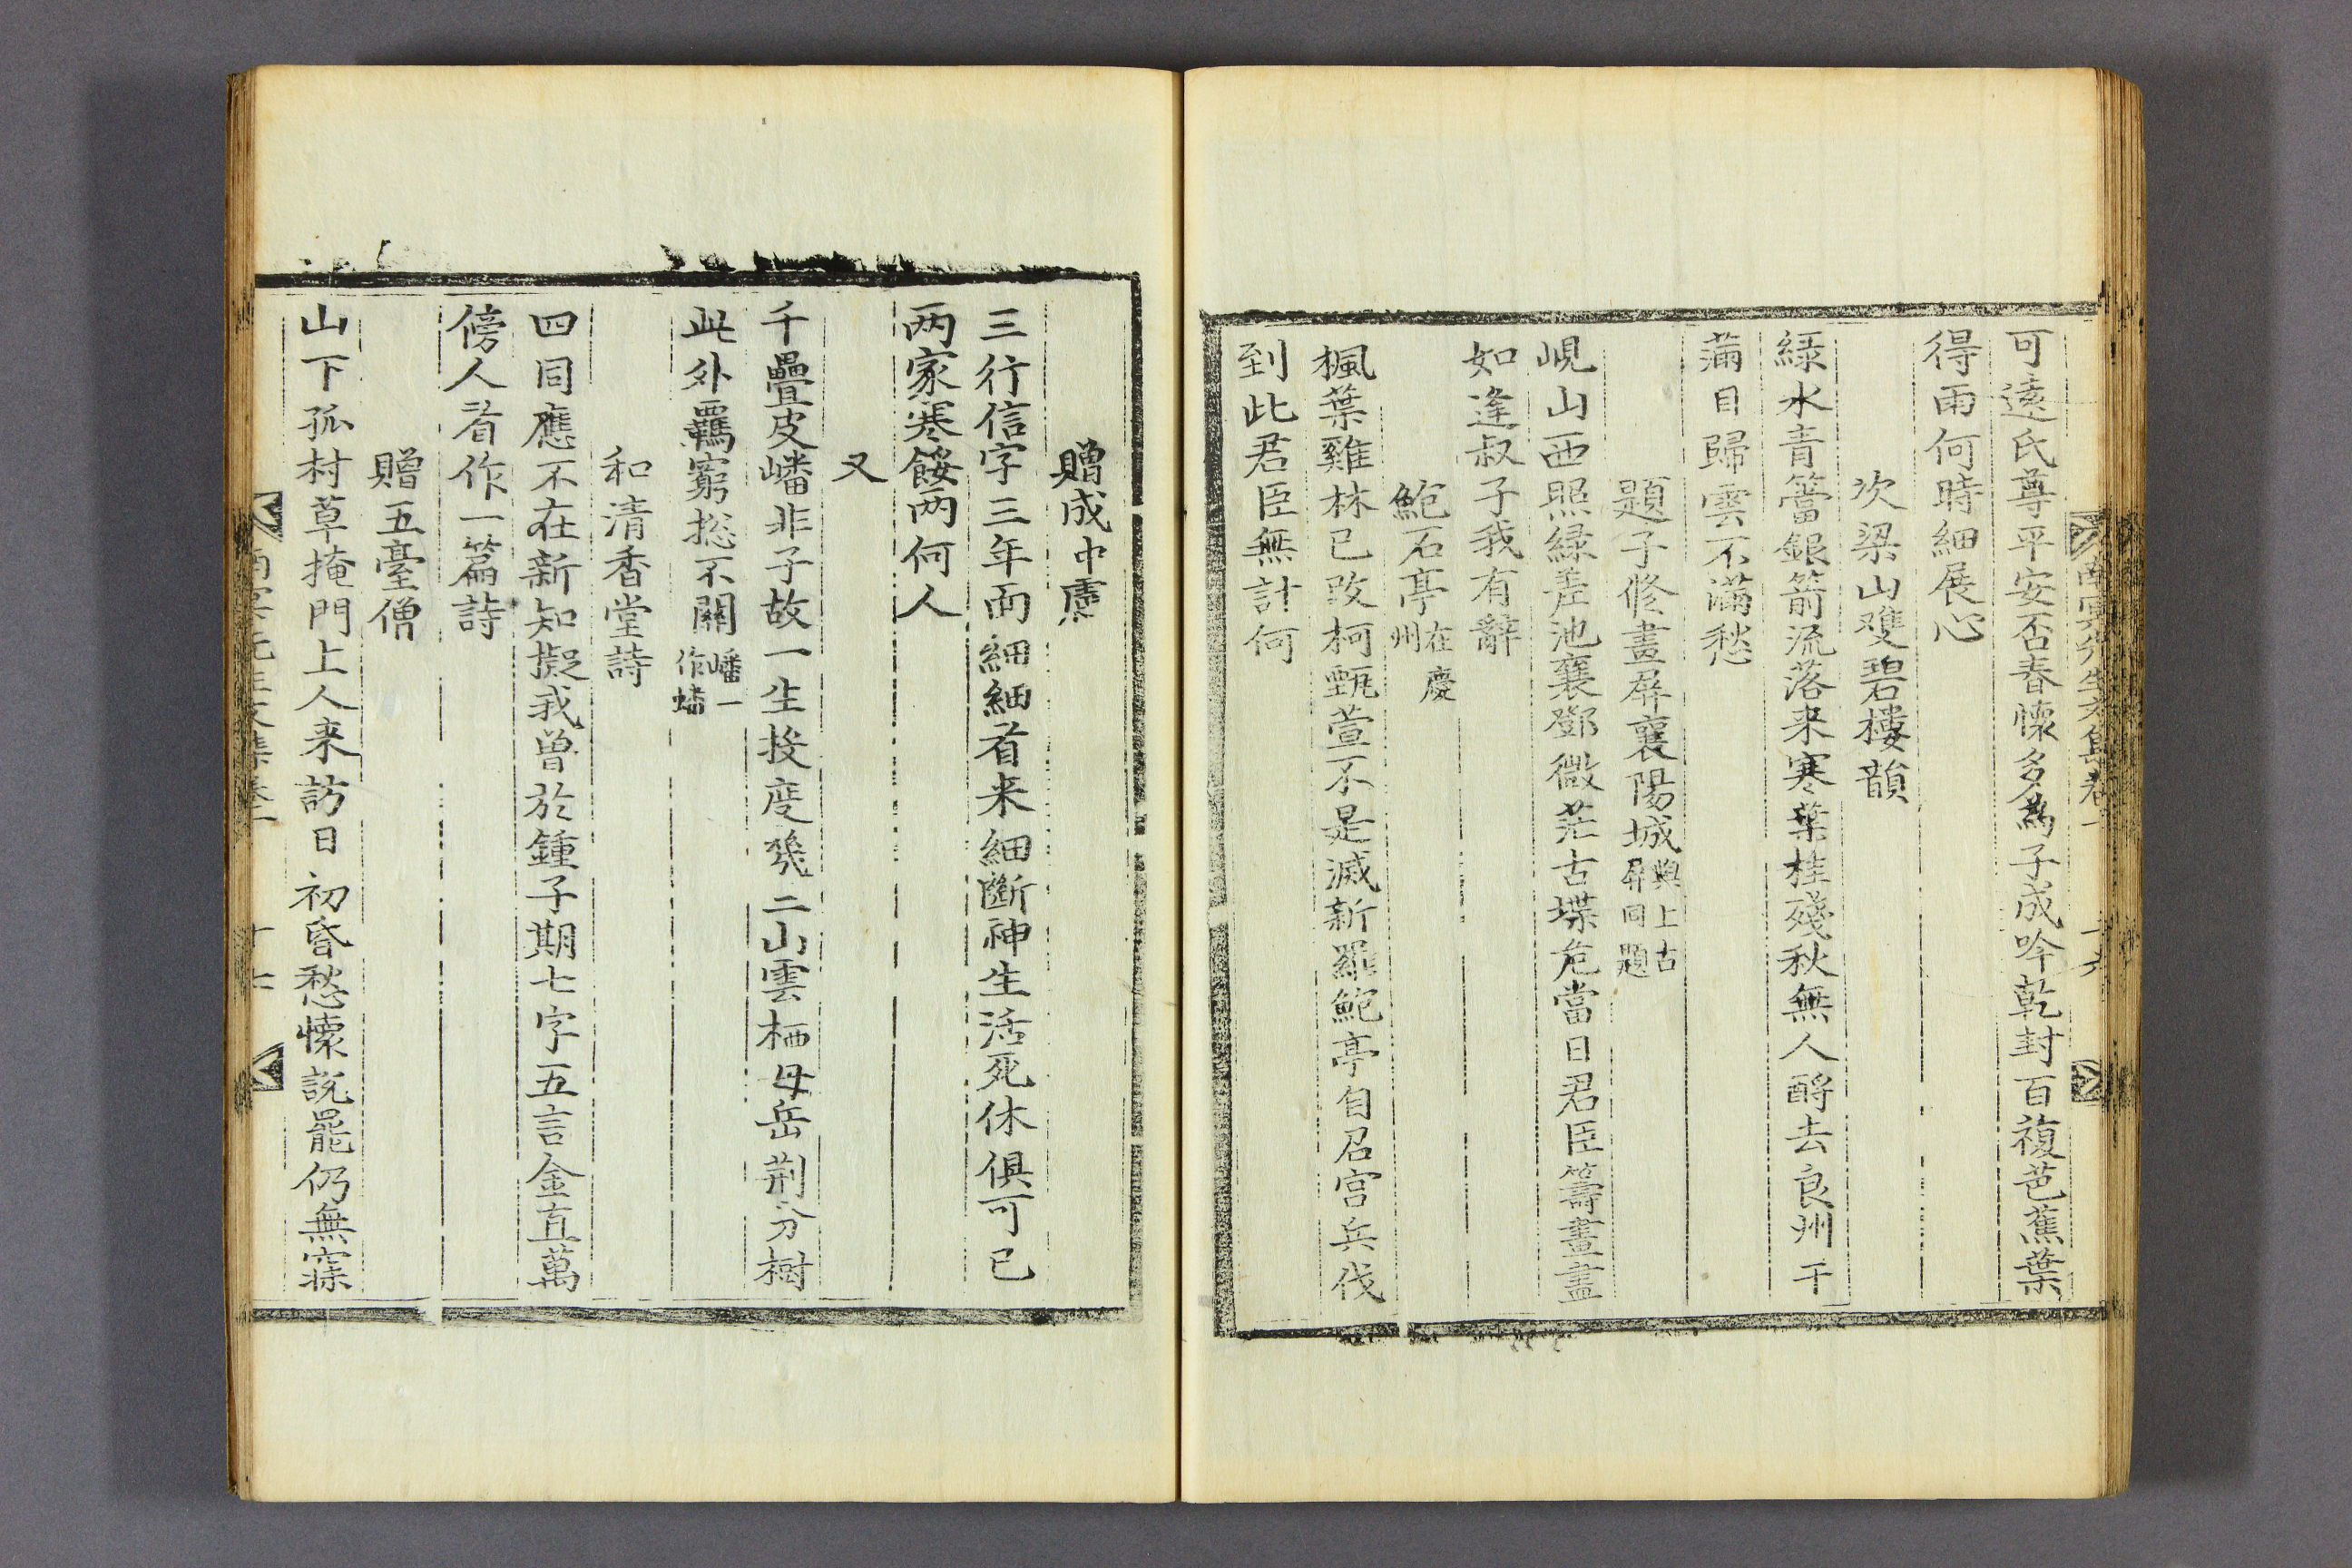 可遠氏尊平安否春懷多為子成吟乾封百複芭蕉葉
得雨何時細展心
次梁山雙碧樓韻
綠水青簹銀箭流落来寒葉桂殘秋無人酹去良州干
滿目歸雲不滿愁
題子修畫屏襄陽城與上古屏同題
峴山西照綠差池襄鄧微茫古堞危當日君臣籌畫盡
如逢叔子我有辭
鮑石亭在慶州
楓葉雞林已改柯甄萱不是滅新羅鮑亭自召宮兵伐
到此君臣無計何
贈成中慮
三行信字三年面細細看来細斷神生活死休俱可已
兩家寒餒兩何人
又
千疊皮嶓非子故一生投庋幾二山雲栖母岳荊分樹
此外羈窮摠不關嶓一作蟠
和清香堂詩
四同應不在新知擬我曾於鍾子期七字五言金直萬
傍人看作一篇詩
贈五臺僧
山下孤村草掩門上人来訪日初昏愁懷說罷仍無寐